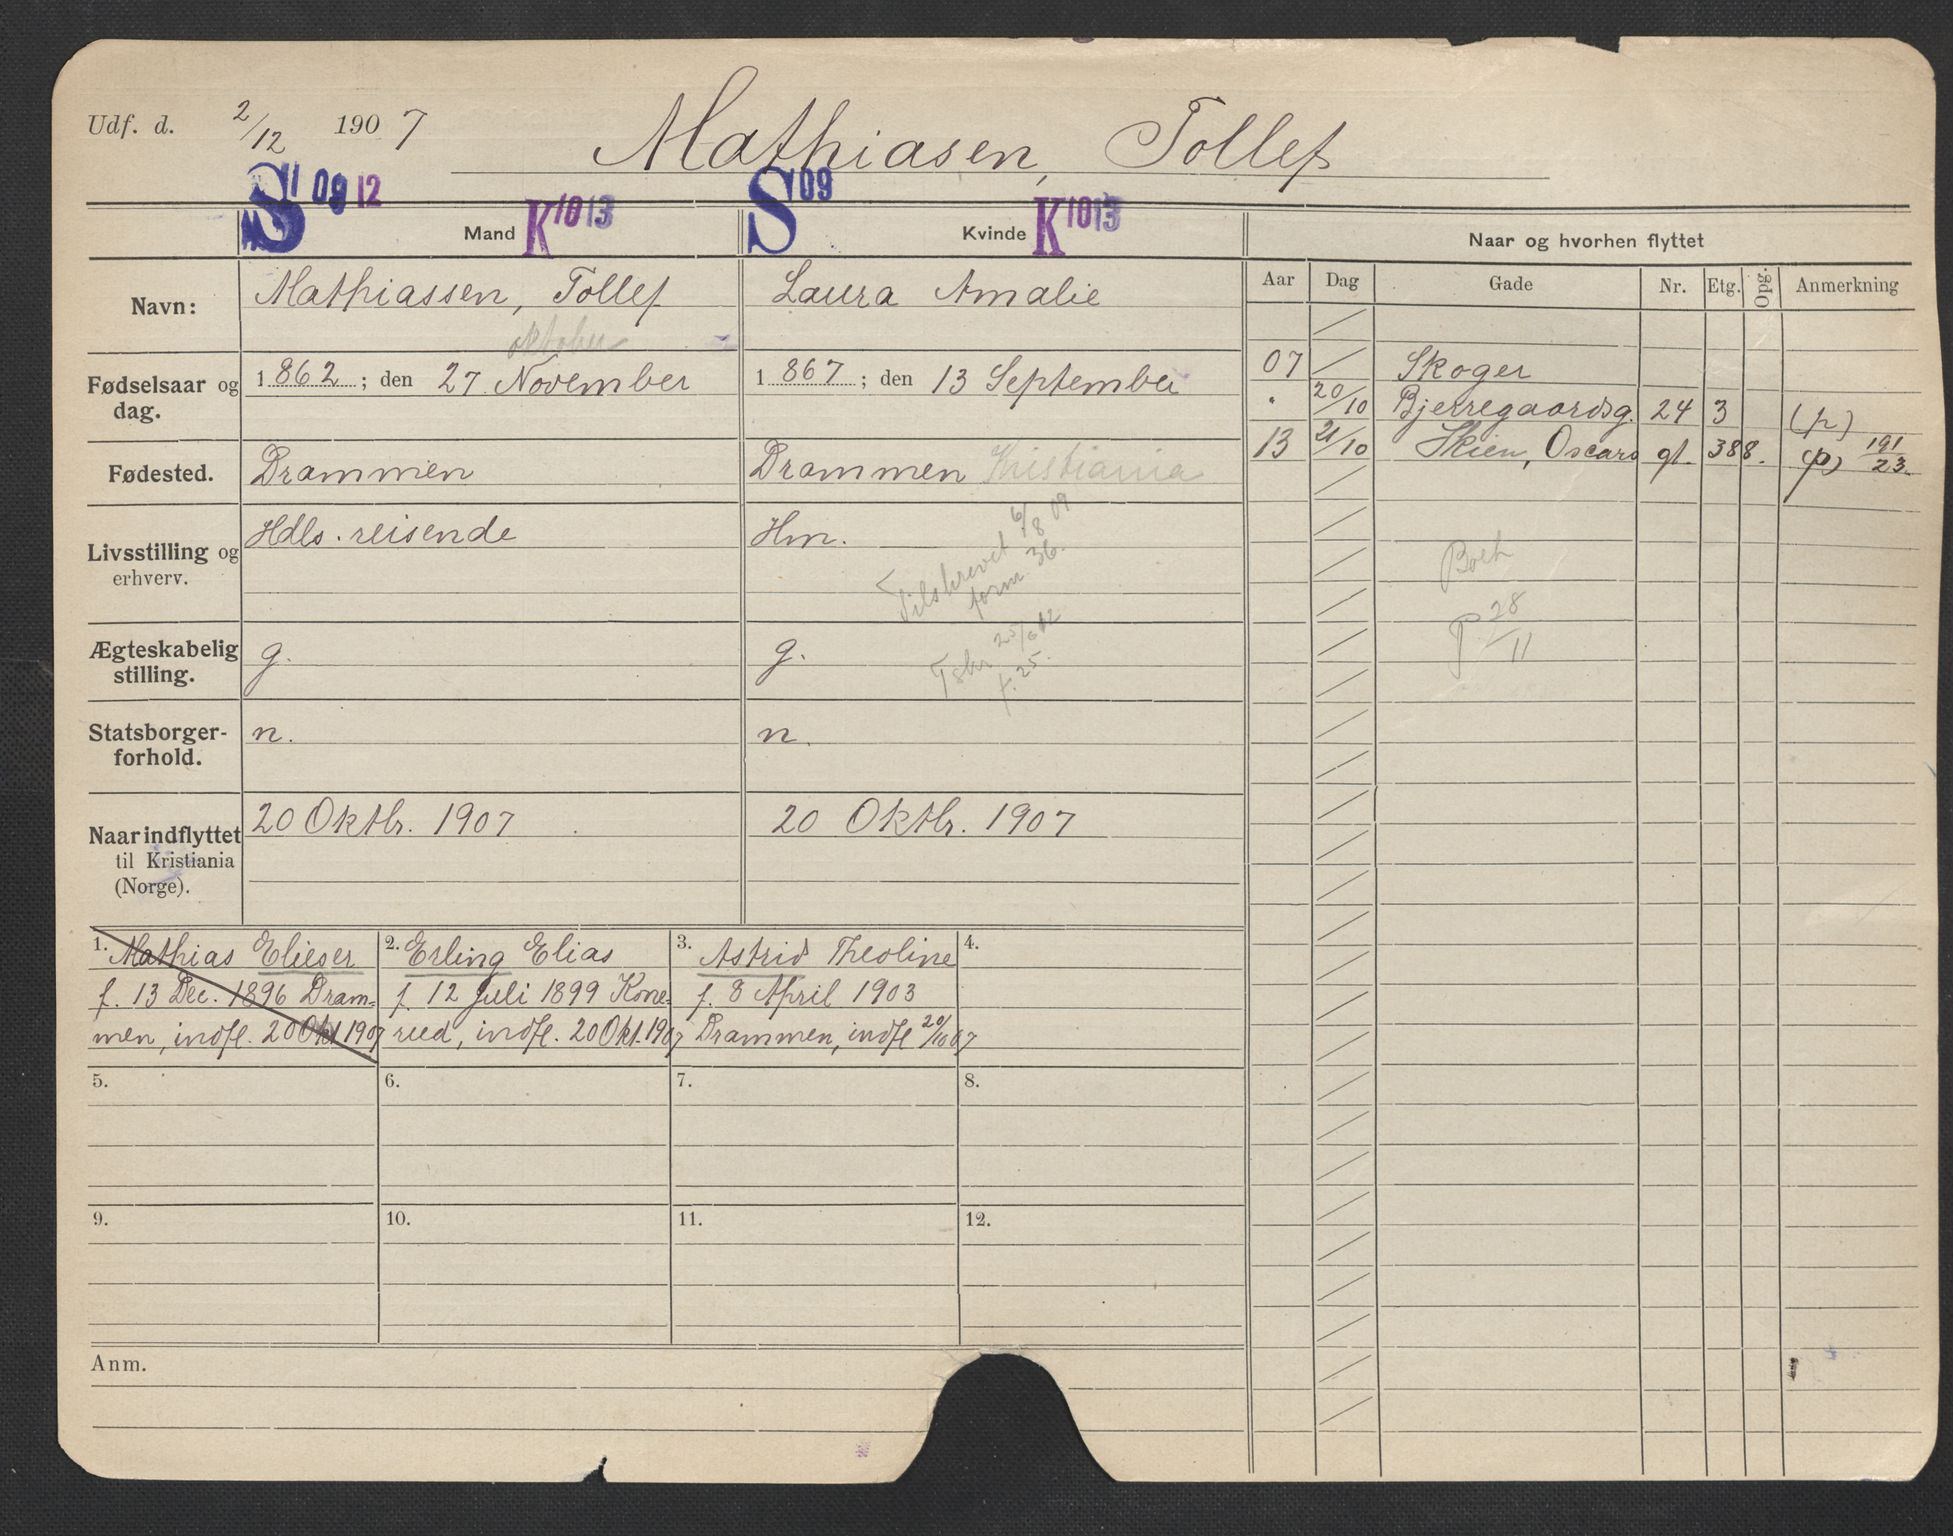 Udf. d. 2/12 1907 Mathiasen, Tollef
S 11 09 12 S 09
Mand K 10 13 Kvinde K 10 13 Naar og hvorhen flyttet
Navn: Mathiassen, Tollef Laura Amalie
Aar Dag Gade Nr. Etg. Opg. Anmerkning
oktober
Fødselsaar og dag. 1862; den 27 November 1867; den 13 September
07 Skoger
" 20/10 Bjerregaardsg. 24 3 (p)
13 21/10 Skien, Oscars gt. 38 8. (p) 191/23.
Fødested. Drammen Drammen Kristiania
Livsstilling og erhverv. Hdls. reisende Hm.
Tilskrevet 6/8 09
form. 36.
Ægteskabelig stilling. g. g.
Tskr 25/6 12
f. 25.
P 28/11
Statsborger-forhold. n. n.
Naar indflyttet til Kristiania (Norge). 20 Oktbr. 1907 20 Oktbr. 1907
1. Mathias Elieser
f. 13 Dec. 1896 Dram=
men, indfl. 20 Okt 1907
2. Erling Elias
f. 12 Juli 1899 Kone=
rud, indfl. 20 Okt. 1907
3. Astrid Theoline
f. 8 April 1903
Drammen, indfl 20/10 07
4.
5. 6. 7. 8.
9. 10. 11. 12.
Anm.